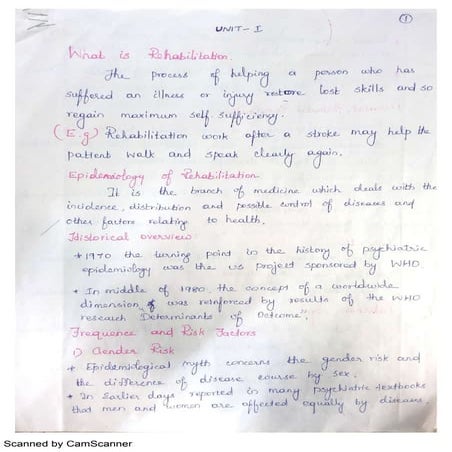 ①
UNIT - I
What is Rehabilitation.
The process of helping a person who has
suffered an illness or injury restore lost skills and so
regain maximum self-sufficiency.
(E.g) Rehabilitation work after a stroke may help the
patient walk and speak clearly again.
Epidemiology of Rehabilitation
It is the branch of medicine which deals with the
incidence, distribution and possible control of diseases and
other factors relating to health.
Historical overview:
* 1970 the turning point in the history of psychiatric
epidemiology was the US project sponsored by WHO
* In middle of 1980. the concept of a worldwide
dimension was reinforced by results of the WHO
research "Determinants of Outcome".
Frequence and Risk Factors
1) Gender Risk
* Epidemiological myth concerns the gender risk and
the difference of disease course by sex.
* In Earlier days reported in many psychiatric textbooks
that men and women are affected equally by disease.
Scanned by CamScanner